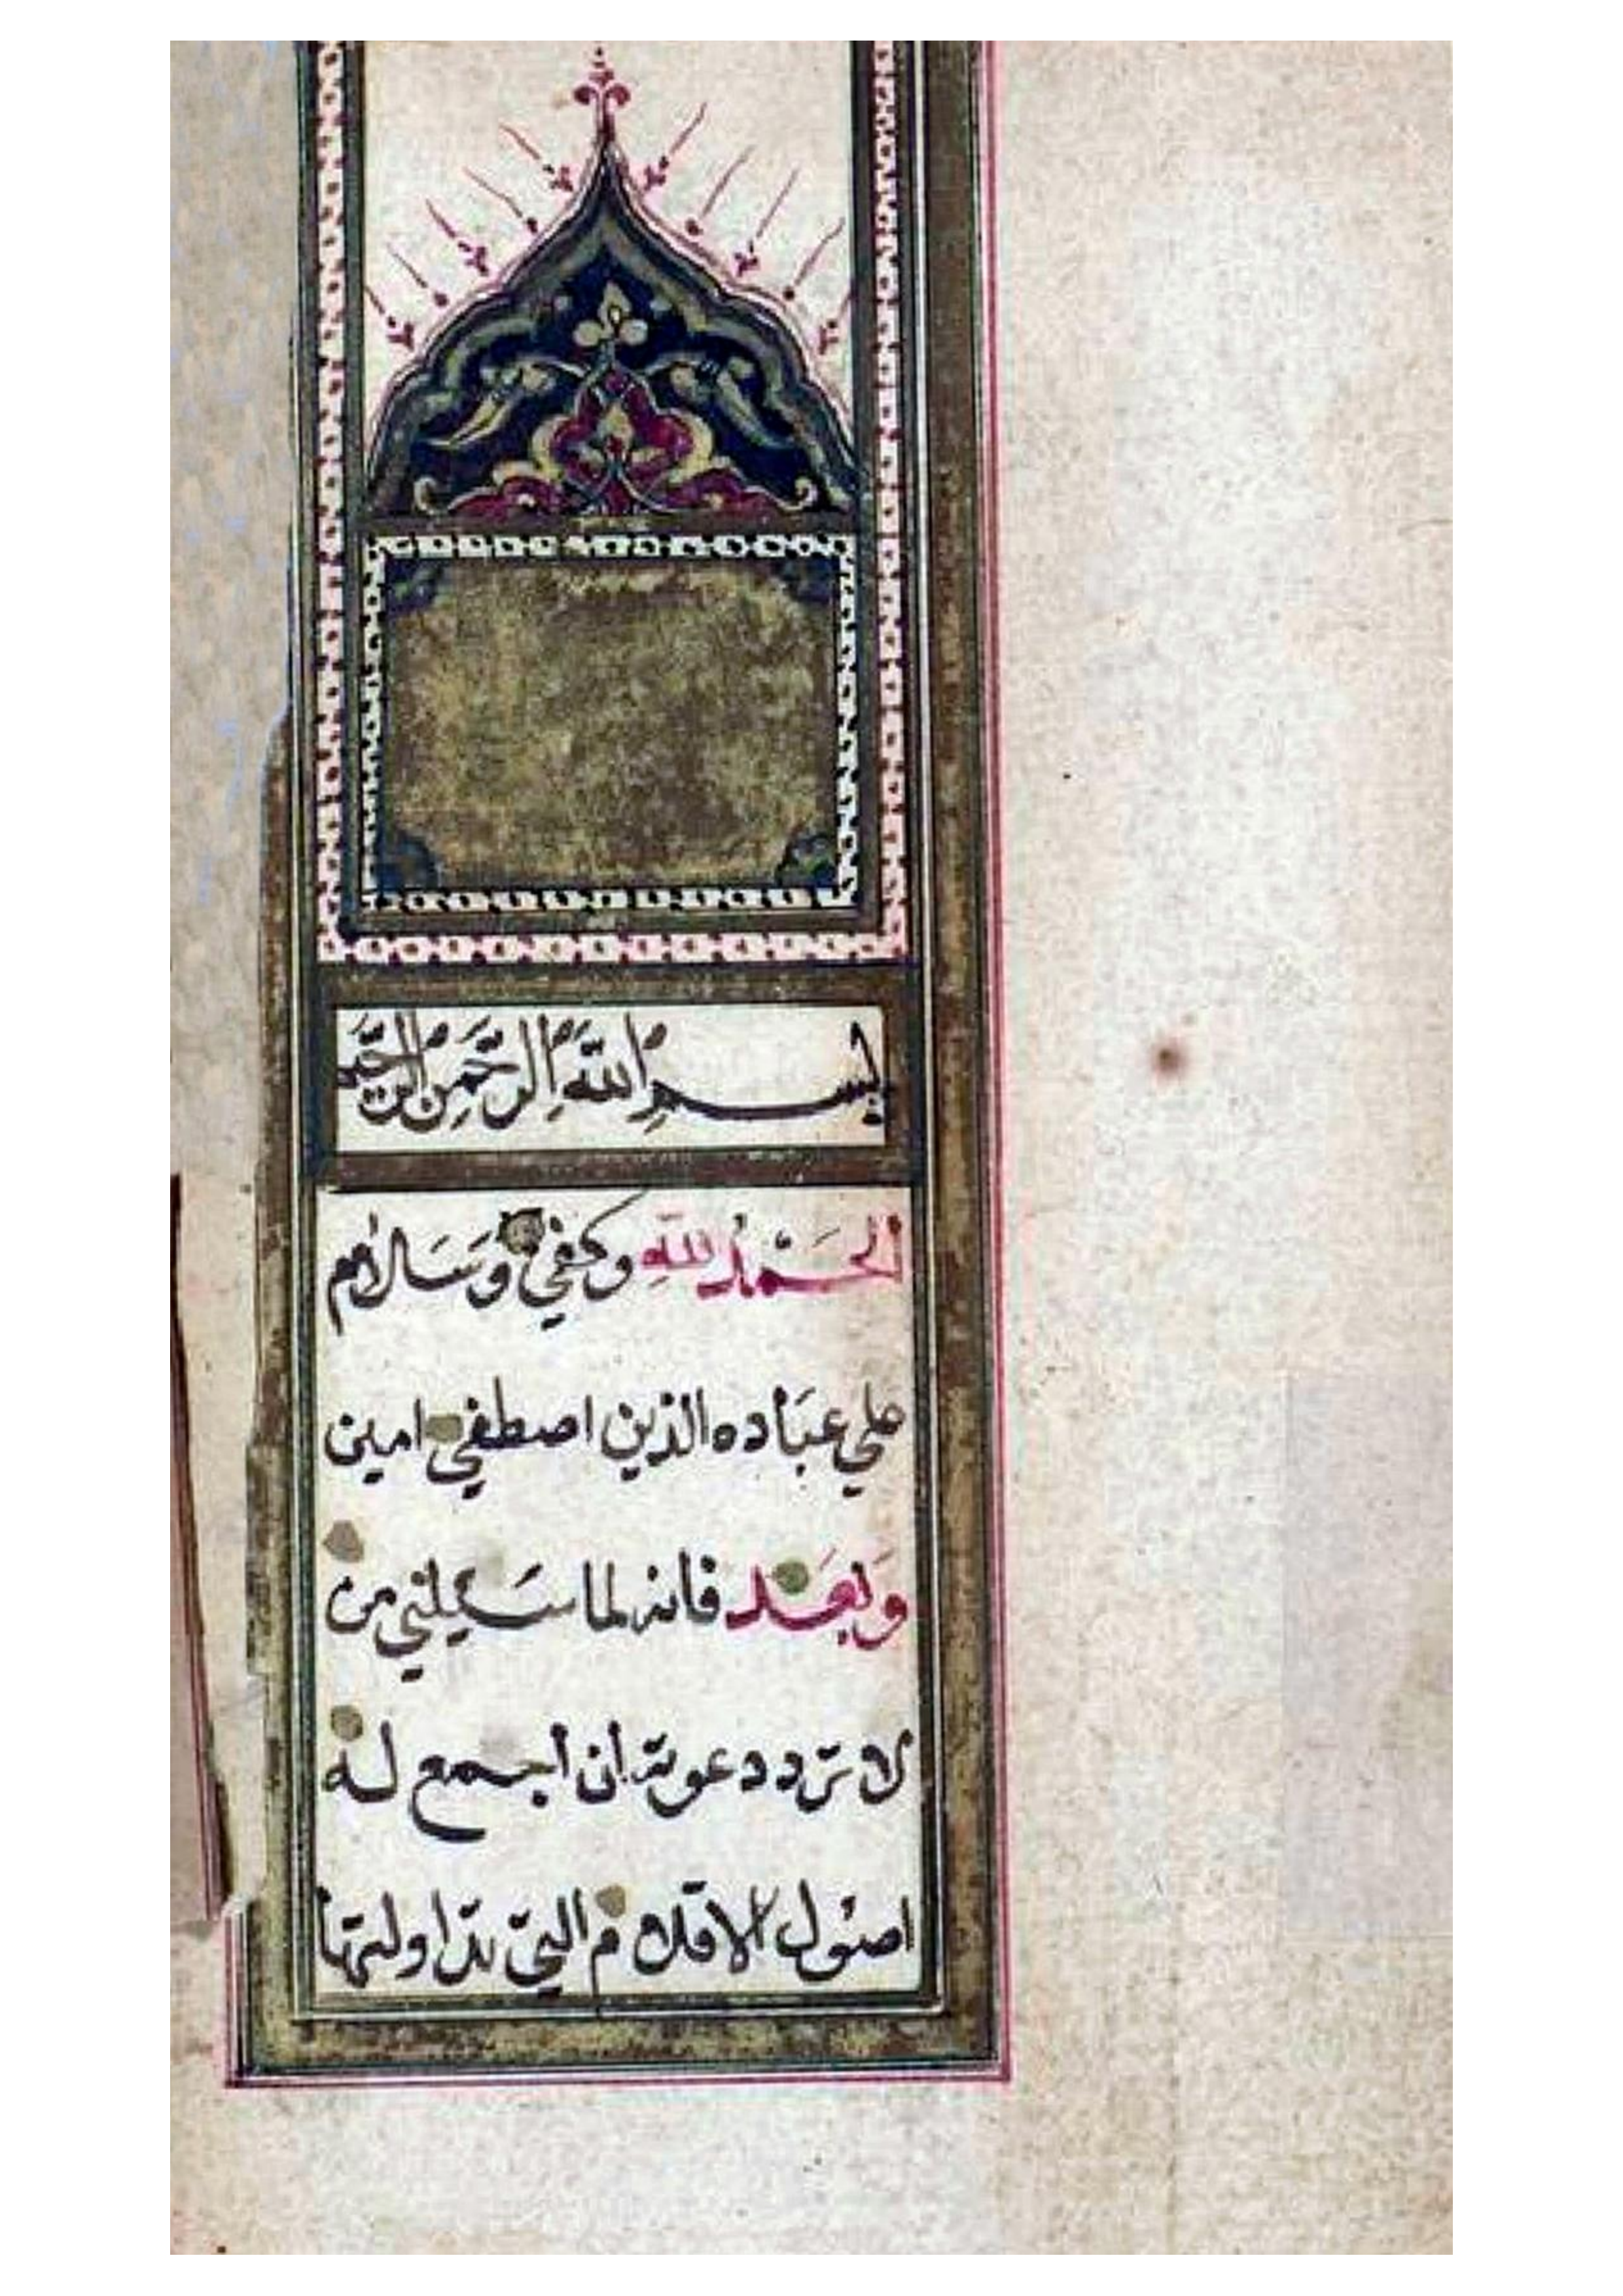 بسم الله الرحمن الرحيم
الحَمْدُ للهِ وكفي وَسَلام
علي عبَاده الذين اصطفي امين
وَبعَد فانه لما سَيلني من
لا ترد دعوته ان اجمع له
اصول الاقلام التي تداولتها